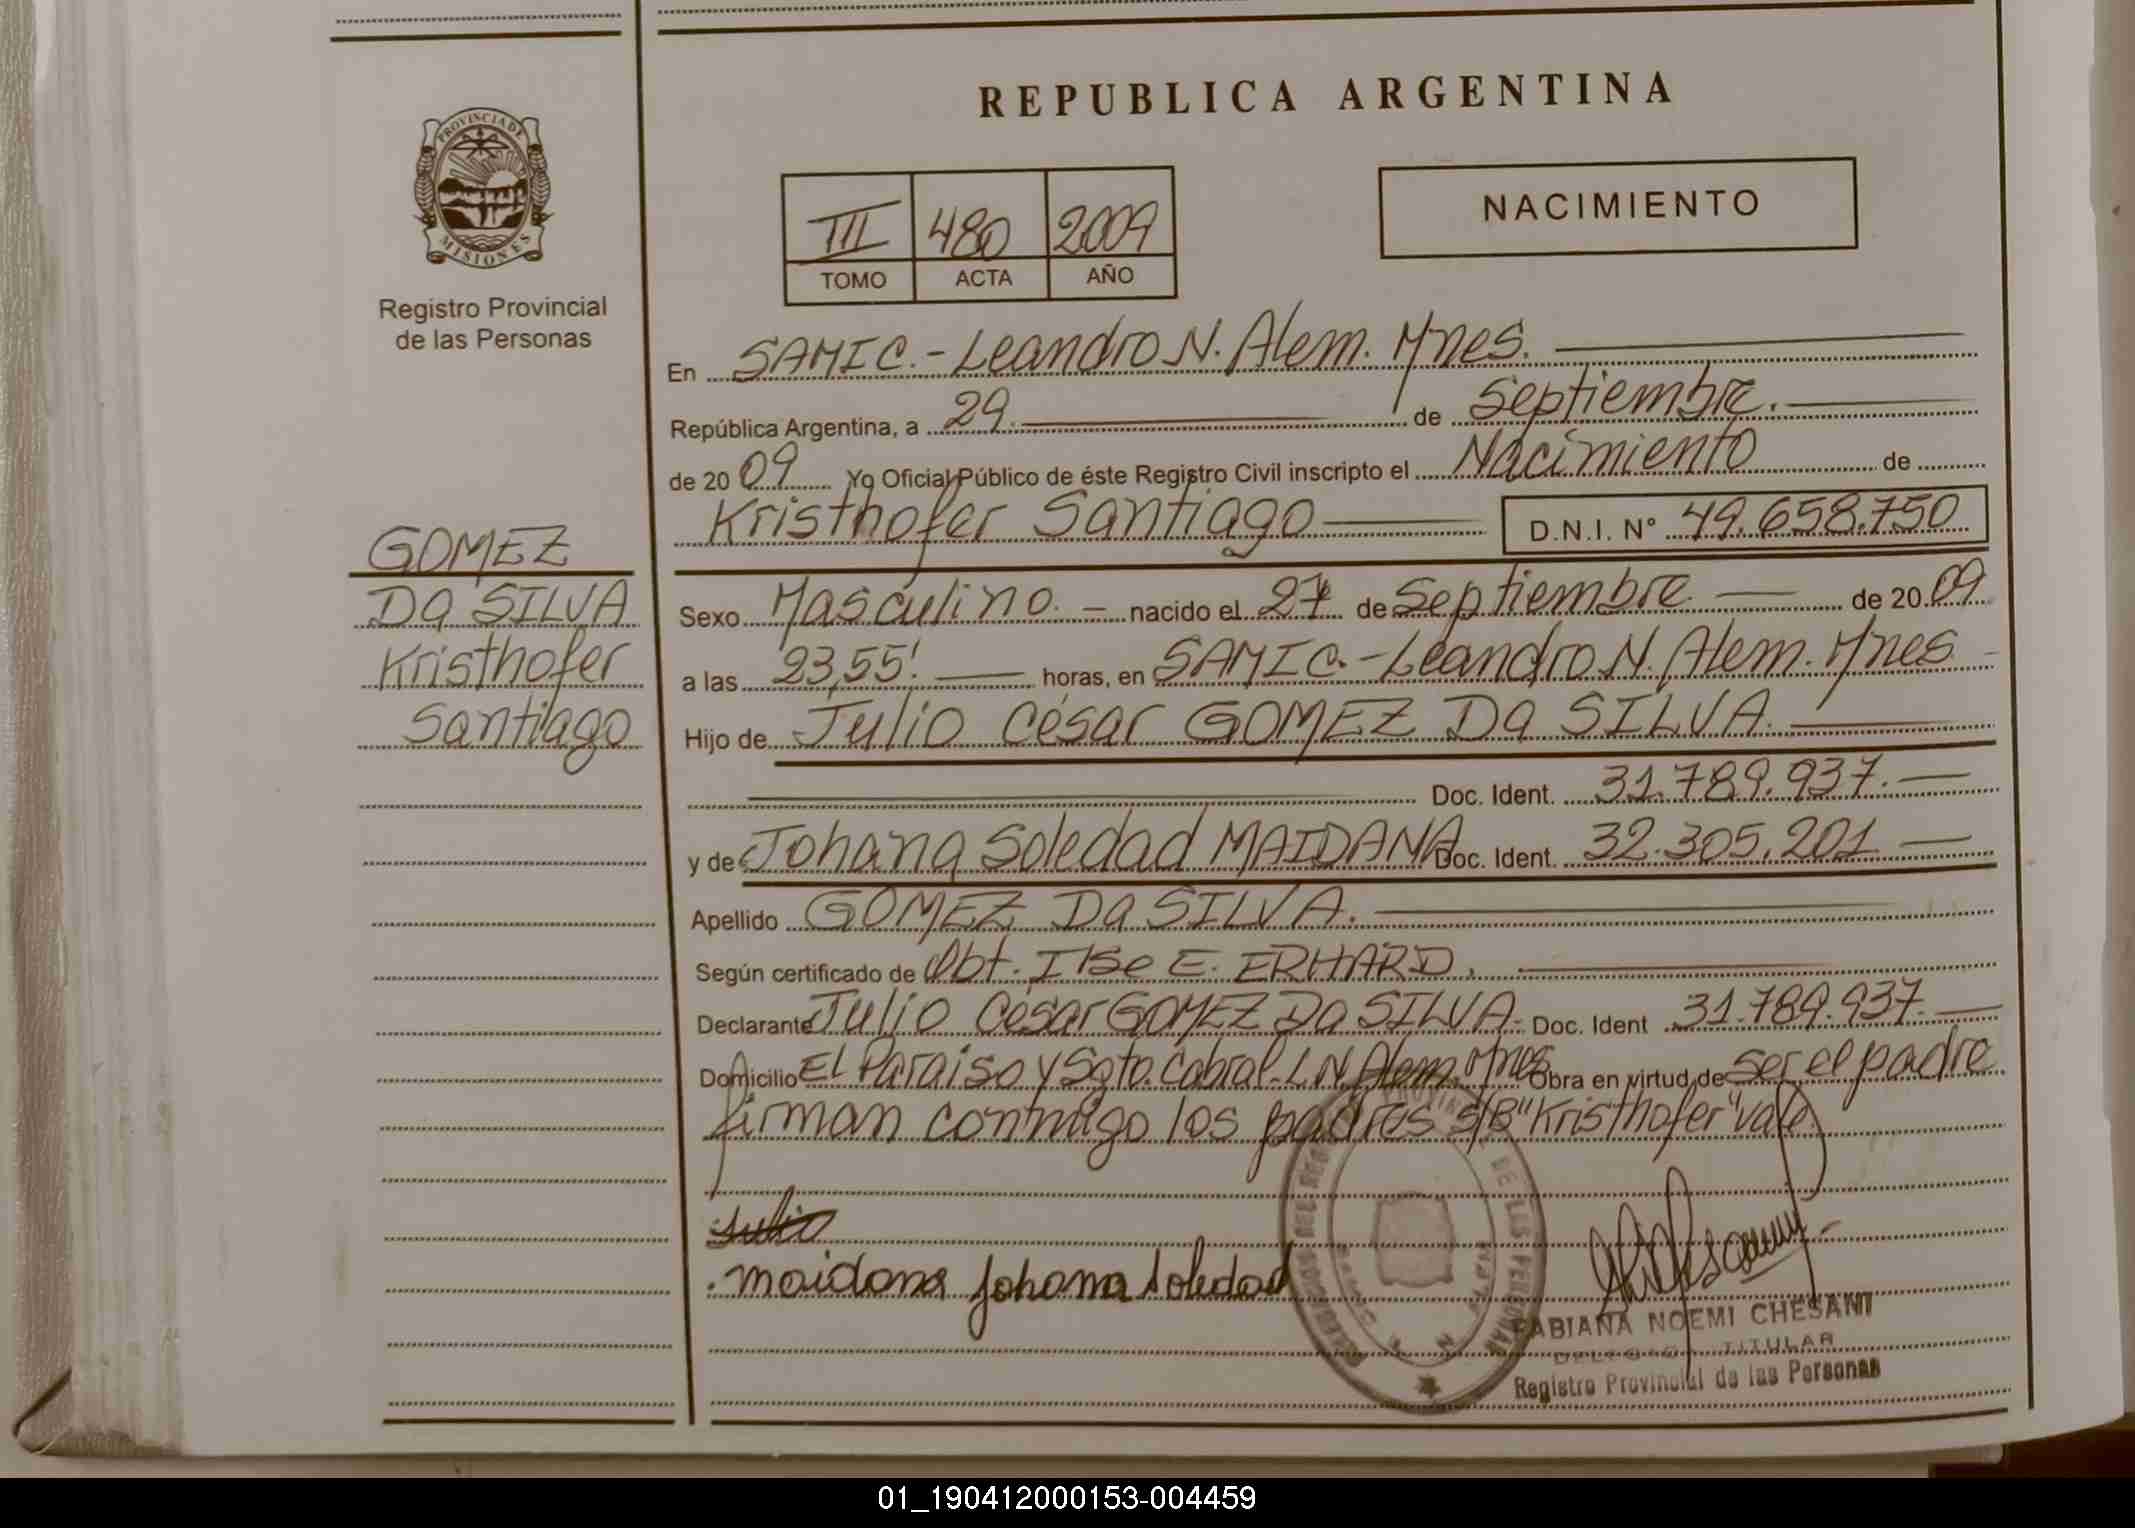 REPUBLICA ARGENTINA
PROVINCIA DE
MISIONES
Registro Provincial
de las Personas
III 480 2009
TOMO ACTA AÑO
NACIMIENTO
En SAMIC.- Leandro N. Alem. Mnes.
República Argentina, a 29. de Septiembre.
de 2009 Yo Oficial Público de éste Registro Civil inscripto el Nacimiento de
Kristhofer Santiago D.N.I. N° 49.658.750
GOMEZ
Da SILVA
Kristhofer
Santiago
Sexo Masculino. - nacido el 27 de Septiembre. de 2009
a las 23,55' horas, en SAMIC.- Leandro N. Alem. Mnes
Hijo de Julio César GOMEZ Da SILVA.
Doc. Ident. 31.789.937.
y de Johana Soledad MAIDANA Doc. Ident. 32.305.201
Apellido GOMEZ Da SILVA.
Según certificado de Obt. Ilse E. ERHARD.
Declarante Julio César GOMEZ Da SILVA. Doc. Ident 31.789.937.
Domicilio El Paraiso y Sgto. Cabral. L.N. Alem. Mnes. Obra en virtud de ser el padre
firman conmigo los padres S/B "Kristhofer" vale.
Julio
maidana Johana Soledad
FABIANA NOEMI CHESANI
DELEGADA TITULAR
Registro Provincial de las Personas
01_190412000153-004459